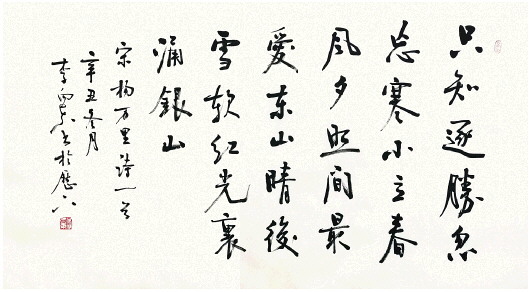 只知逐勝忽
忘寒小立春
風夕照間最
愛东山晴後
雪软红光裏
涌銀山
宋杨万里诗一首
辛丑冬月
李